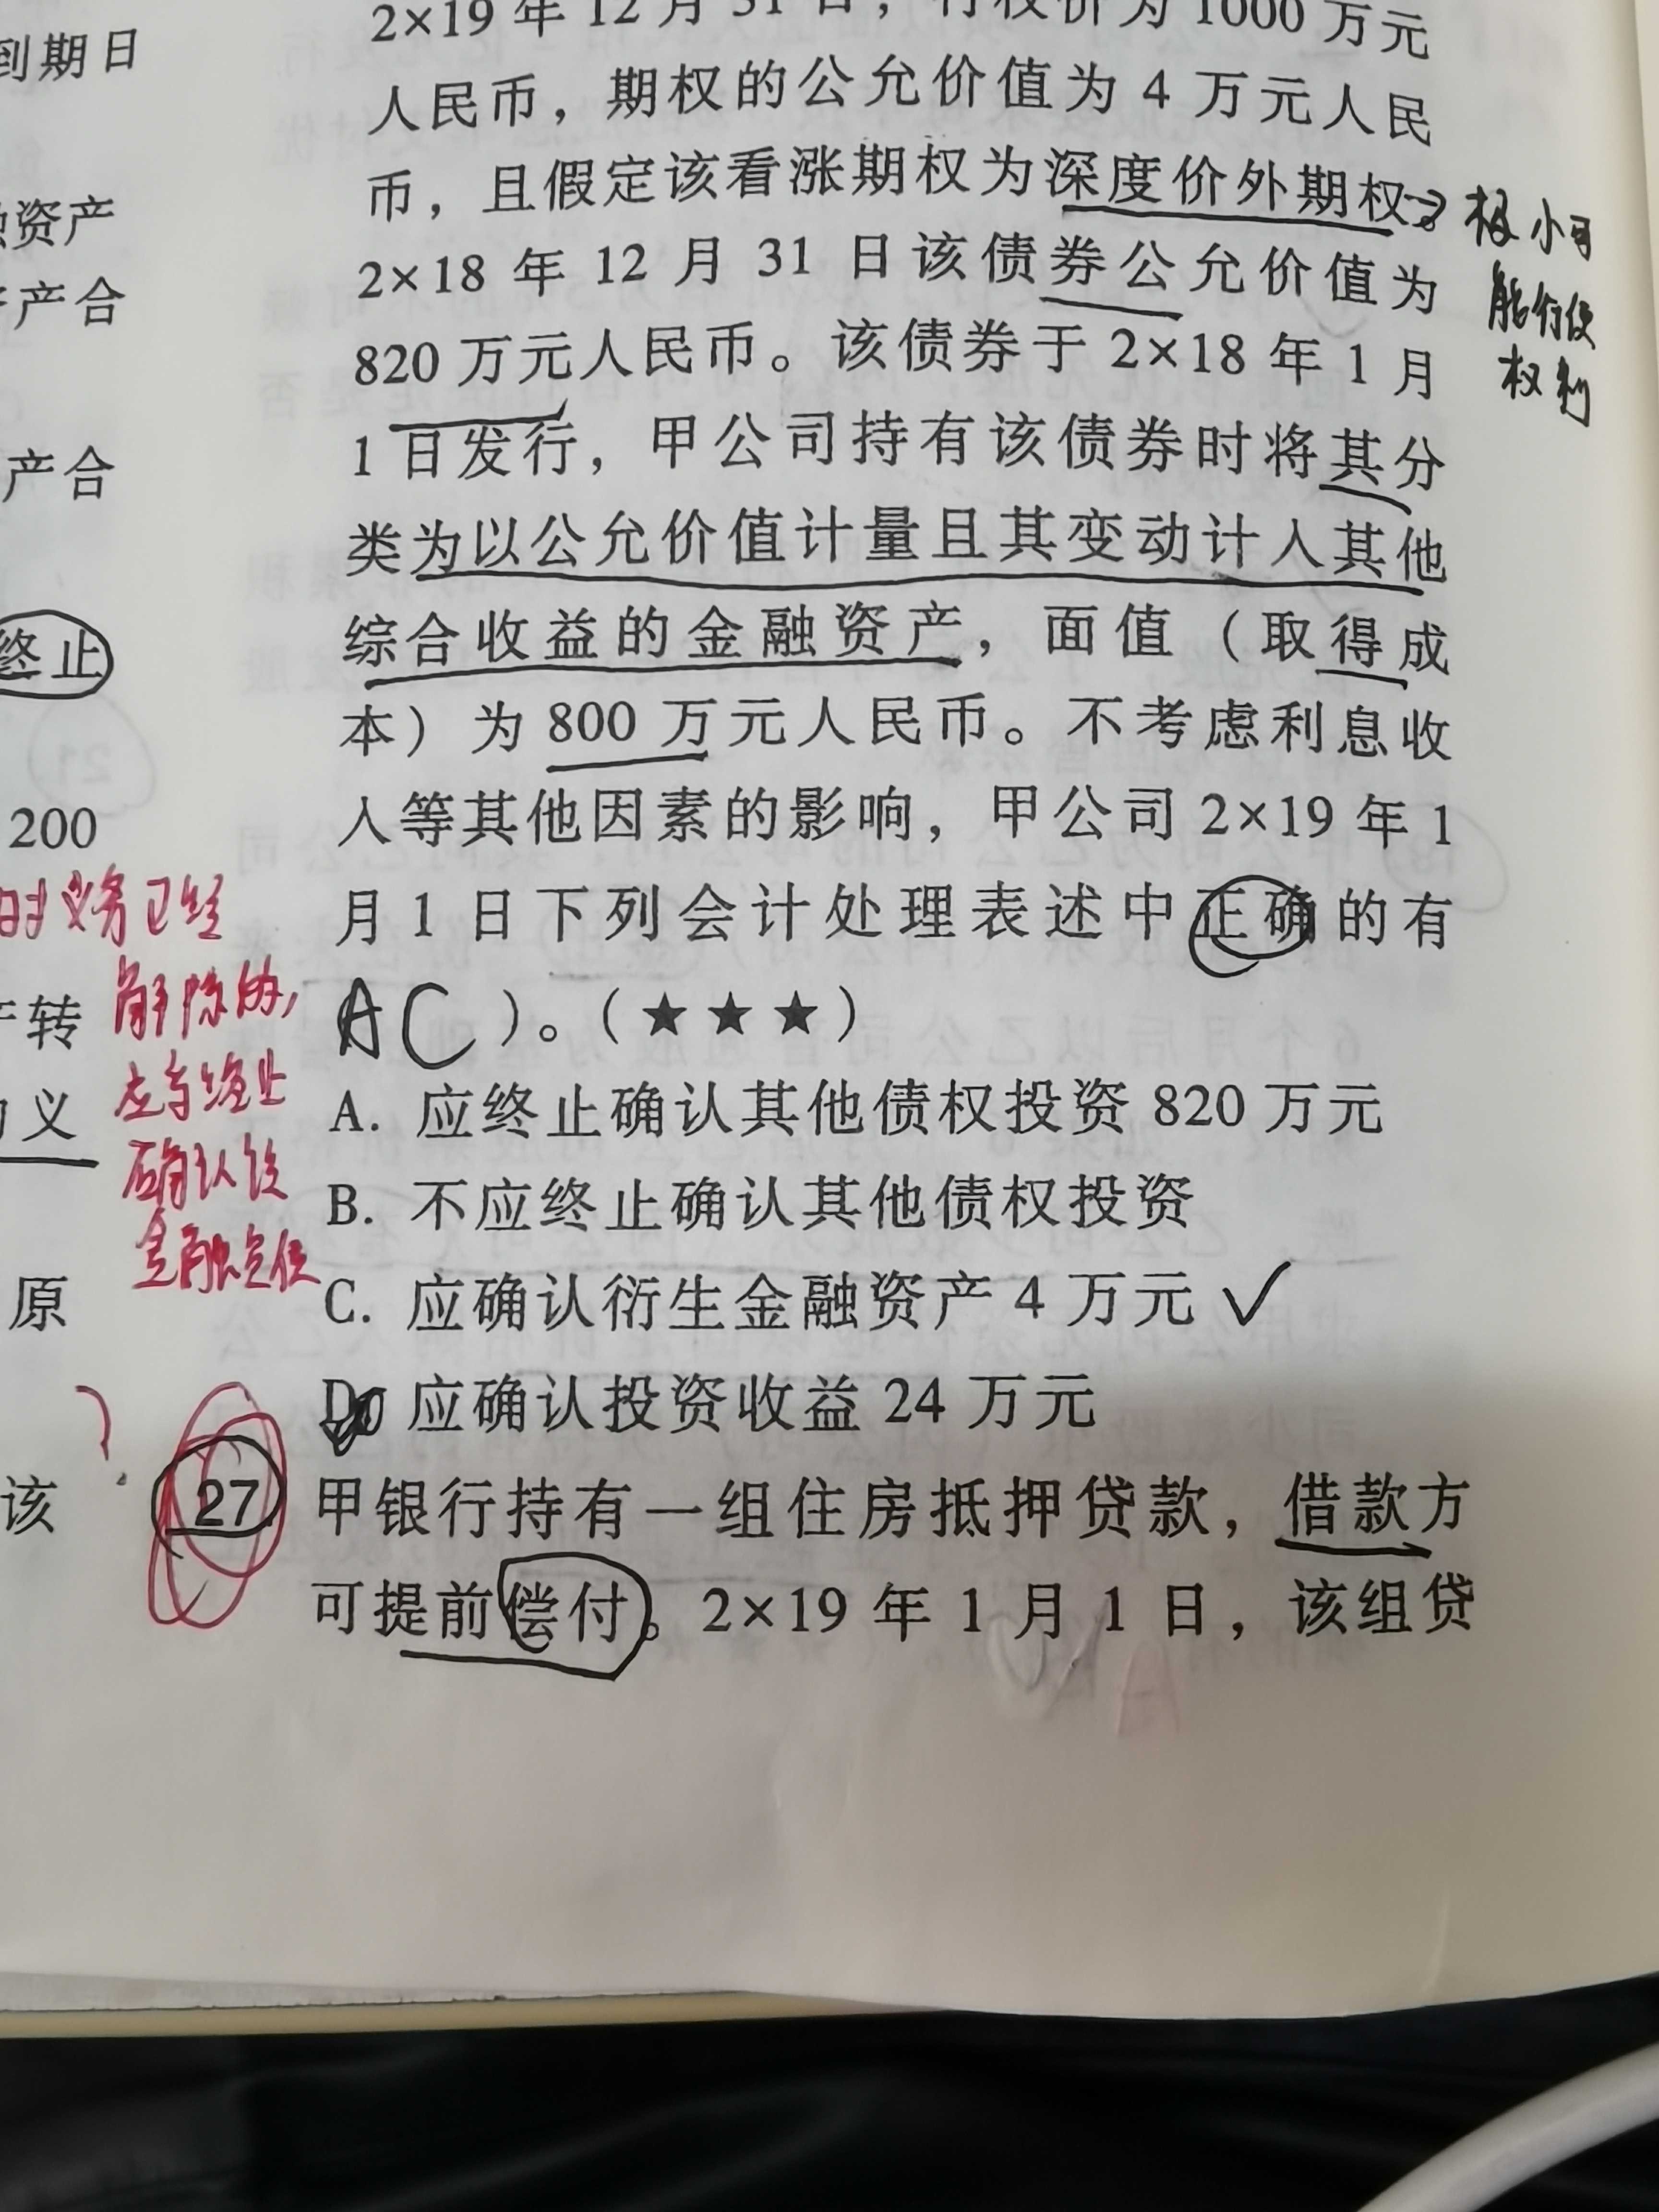 到期日
融资产
产合
产合
终止
200
的义务已经
解除的,
应与终止
确认该
金融负债
转
义
原
该
2×19年12月31日，行权价为1000万元
人民币，期权的公允价值为4万元人民
币，且假定该看涨期权为深度价外期权。
极小可
能行使
权利
2×18年12月31日该债券公允价值为
820万元人民币。该债券于2×18年1月
1日发行，甲公司持有该债券时将其分
类为以公允价值计量且其变动计入其他
综合收益的金融资产，面值（取得成
本）为800万元人民币。不考虑利息收
入等其他因素的影响，甲公司2×19年1
月1日下列会计处理表述中正确的有
AC）。（★★★）
A. 应终止确认其他债权投资820万元
B. 不应终止确认其他债权投资
C. 应确认衍生金融资产4万元 ✓
D. 应确认投资收益24万元
27 甲银行持有一组住房抵押贷款，借款方
可提前偿付。2×19年1月1日，该组贷